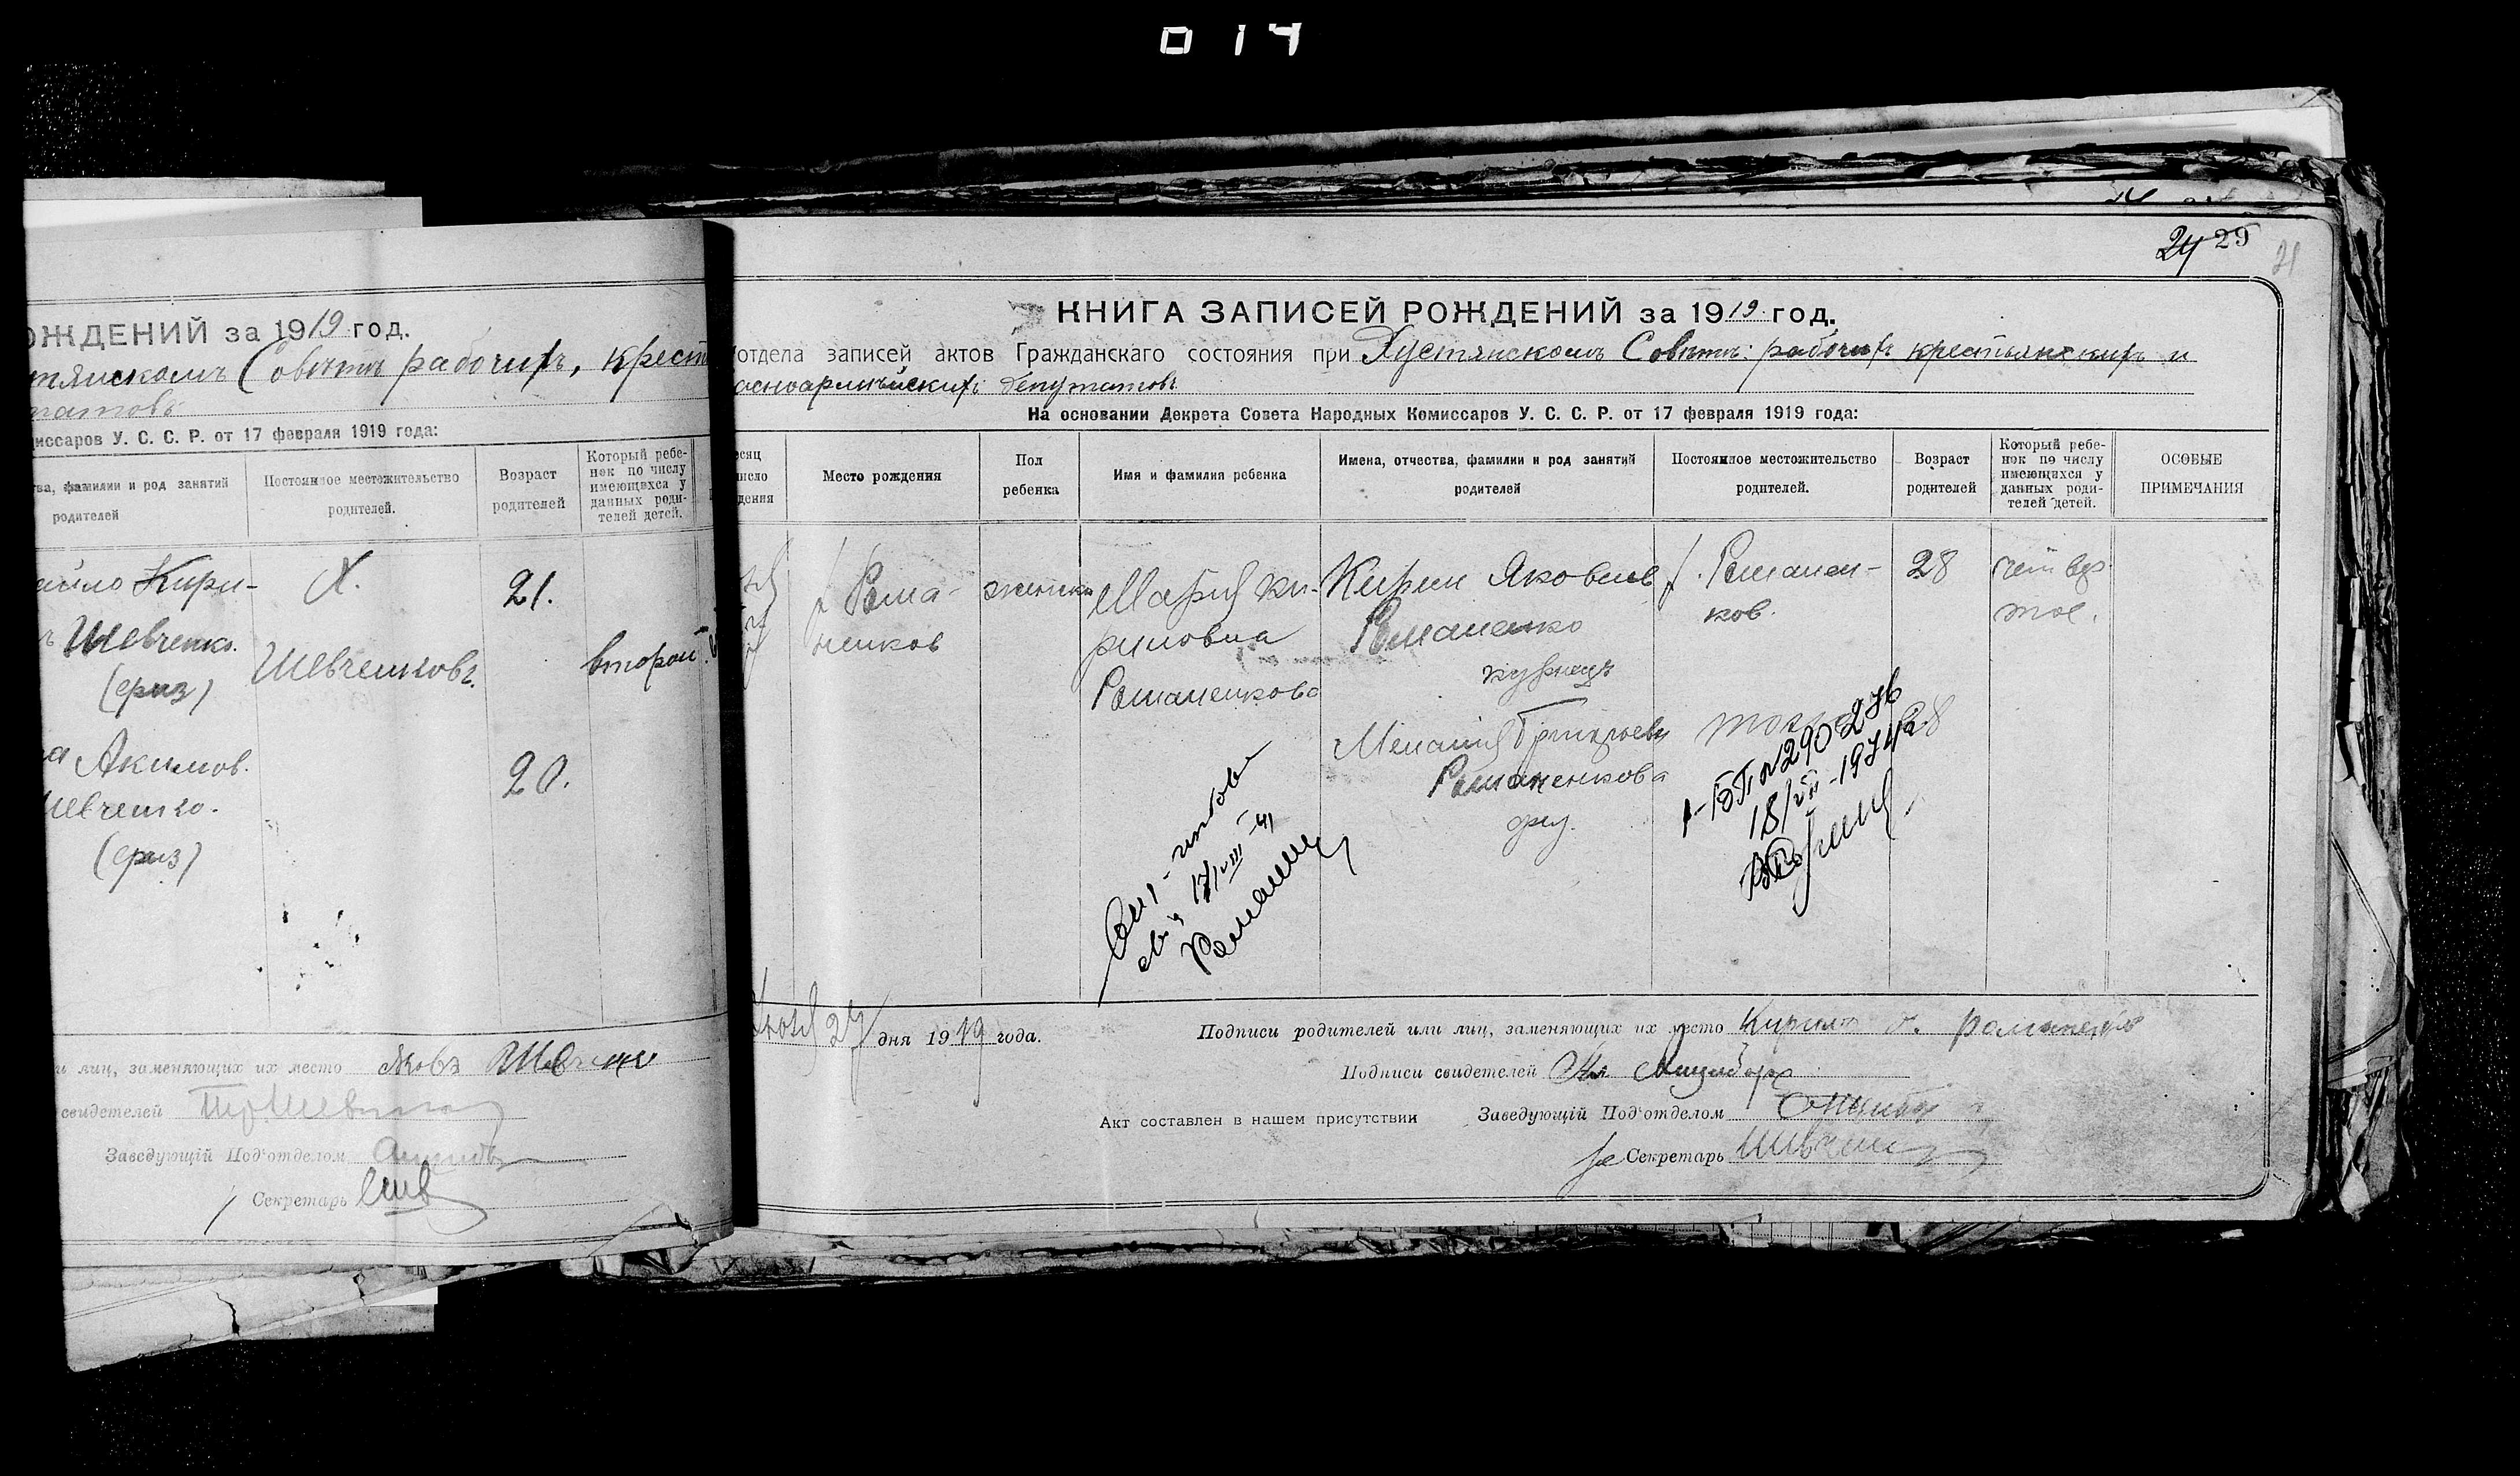 014
ОЖДЕНИЙ за 1919 год.
тянскомъ Совѣтѣ рабочихъ, крест
татовъ
миссаров У. С. С. Р. от 17 февраля 1919 года:
тва, фамилии и род занятий родителей
Постоянное местожительство родителей.
Возраст родителей
Который ребе-
нок по числу
имеющихся у
данных роди-
телей детей.
айло Кири-
Шевченко.
Х.
Шевченковъ.
21.
второй.
Акимов.
20.
и лиц, заменяющих их место Яковъ Шевченко
свидетелей
Заведующій Под'отделом
Секретарь Шев
24 29
21
КНИГА ЗАПИСЕЙ РОЖДЕНИЙ за 1919 год.
отдела записей актов Гражданскаго состояния при Хустянскомъ Совѣтѣ рабочихъ крестьянскихъ и
асноармѣйскихъ депутатовъ
На основании Декрета Совета Народных Комиссаров У. С. С. Р. от 17 февраля 1919 года:
есяц
исло
дения
Место рождения
Пол ребенка
Имя и фамилия ребенка
Имена, отчества, фамилии и род занятий родителей
Постоянное местожительство родителей.
Возраст родителей
Который ребе-
нок по числу
имеющихся у
данных роди-
телей детей.
ОСОБЫЕ ПРИМЕЧАНИЯ
х Рома-
ненков
женска
Мария Ки-
риловна
Романенкова
Кирил Яковлев
Романенко
кузнец
х. Романен-
ков.
28
четвер-
тое.
Мелания Григорьевн
Романенкова
28
17/VIII-41
18/VII-1974
27 дня 1919 года.
Подписи родителей или лиц, заменяющих их место Кирило Я. Романенко
Подписи свидетелей
Акт составлен в нашем присутствии
Заведующій Под'отделом
Секретарь Шевченко